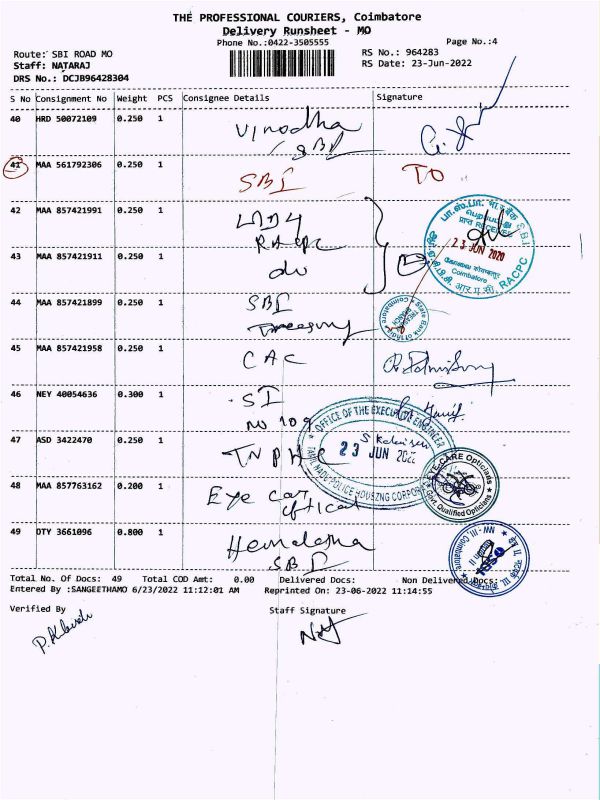 THE PROFESSIONAL COURIERS, Coimbatore
Delivery Runsheet - MO
Phone No.:0422-3505555
Page No.:4
Route: SBI ROAD MO
RS No.: 964283
Staff: NATARAJ
RS Date: 23-Jun-2022
DRS No.: DCJB96428304
S No Consignment No Weight PCS Consignee Details Signature
40 HRD 50072109 0.250 1 Vinodha
SBI
41 MAA 561792306 0.250 1 SBI TO
42 MAA 857421991 0.250 1
RACPC
43 MAA 857421911 0.250 1 do
23 JUN 2020
Coimbatore
RACPC
44 MAA 857421899 0.250 1 SBI
Treasury
State Bank of India
45 MAA 857421958 0.250 1 CAC
46 NEY 40054636 0.300 1 SI
NO 109
OFFICE OF THE EXECUTIVE ENGINEER
23 JUN 2022
TAMIL NADU POLICE HOUSING CORPOR
47 ASD 3422470 0.250 1 TNPHC
EYE-CARE Opticians
Govt. Qualified Opticians
48 MAA 857763162 0.200 1 Eye car
optical
49 OTY 3661096 0.800 1 Hemalatha
SBI
Total No. Of Docs: 49 Total COD Amt: 0.00 Delivered Docs: Non Delivered Docs:
Entered By :SANGEETHAMO 6/23/2022 11:12:01 AM Reprinted On: 23-06-2022 11:14:55
Verified By Staff Signature